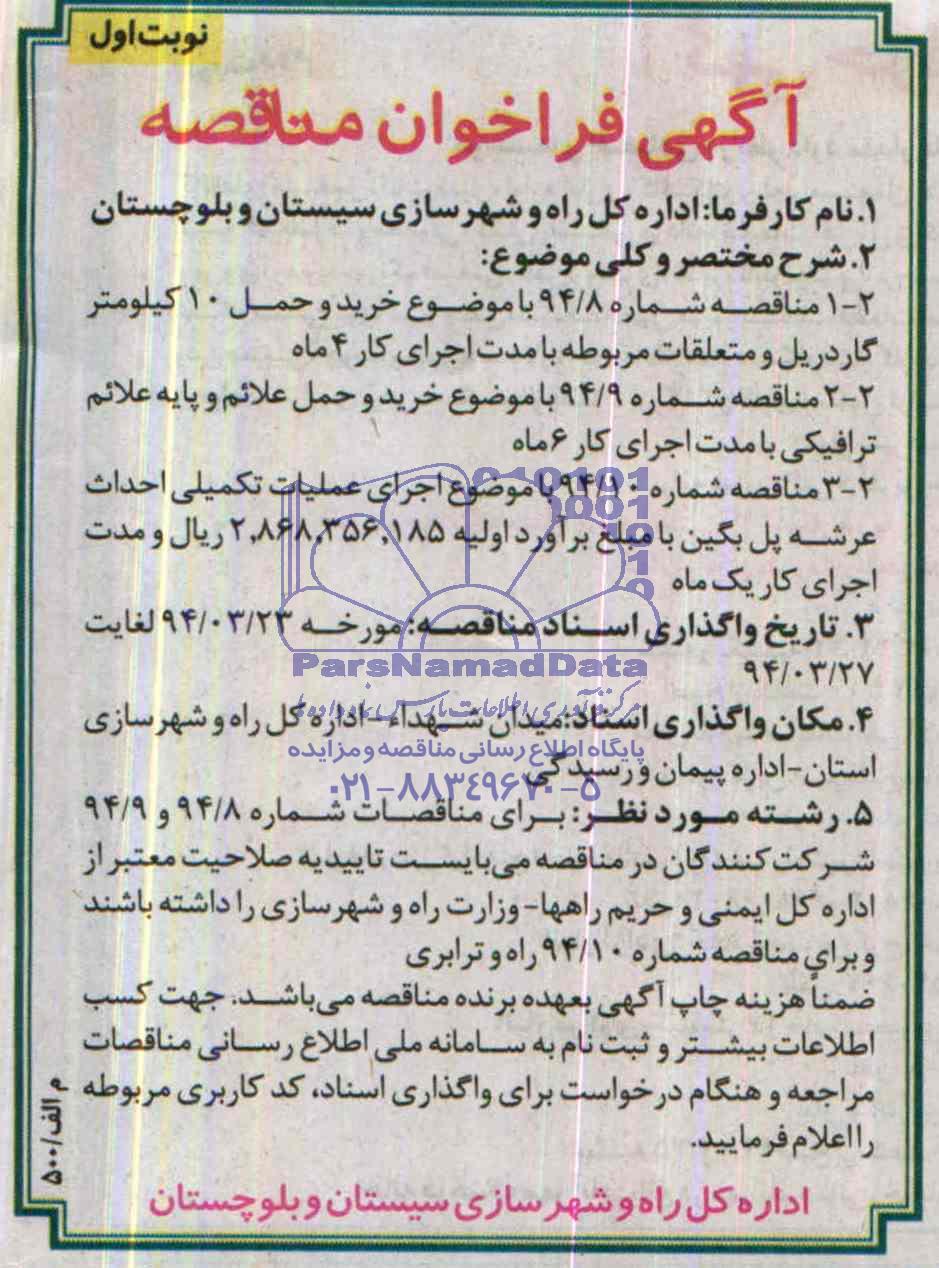 نوبت اول
آگهی فراخوان مناقصه
۱. نام کارفرما: اداره کل راه و شهرسازی سیستان و بلوچستان
۲. شرح مختصر و کلی موضوع:
۱-۲ مناقصه شماره ۹۴/۸ با موضوع خرید و حمل ۱۰ کیلومتر
گاردریل و متعلقات مربوطه با مدت اجرای کار ۴ ماه
۲-۲ مناقصه شماره ۹۴/۹ با موضوع خرید و حمل علائم و پایه علائم
ترافیکی با مدت اجرای کار ۶ ماه
۳-۲ مناقصه شماره ۹۴/۱۰ با موضوع اجرای عملیات تکمیلی احداث
عرشه پل بگین با مبلغ برآورد اولیه ۲,۸۶۸,۳۵۶,۱۸۵ ریال و مدت
اجرای کار یک ماه
۳. تاریخ واگذاری اسناد مناقصه: مورخه ۹۴/۰۳/۲۳ لغایت
۹۴/۰۳/۲۷
ParsNamadData
مرکز فرآوری اطلاعات پارس نماد داده ها
۴. مکان واگذاری اسناد: میدان شهداء - اداره کل راه و شهرسازی
پایگاه اطلاع رسانی مناقصه و مزایده
استان - اداره پیمان و رسیدگی
۰۲۱-۸۸۳۴۹۶۷۰-۵
۵. رشته مورد نظر: برای مناقصات شماره ۹۴/۸ و ۹۴/۹
شرکت کنندگان در مناقصه می‌بایست تاییدیه صلاحیت معتبر از
اداره کل ایمنی و حریم راهها - وزارت راه و شهرسازی را داشته باشند
و برای مناقصه شماره ۹۴/۱۰ راه و ترابری
ضمناً هزینه چاپ آگهی بعهده برنده مناقصه می‌باشد. جهت کسب
اطلاعات بیشتر و ثبت نام به سامانه ملی اطلاع رسانی مناقصات
مراجعه و هنگام درخواست برای واگذاری اسناد، کد کاربری مربوطه
را اعلام فرمایید.
م الف/۵۰۰
اداره کل راه و شهرسازی سیستان و بلوچستان